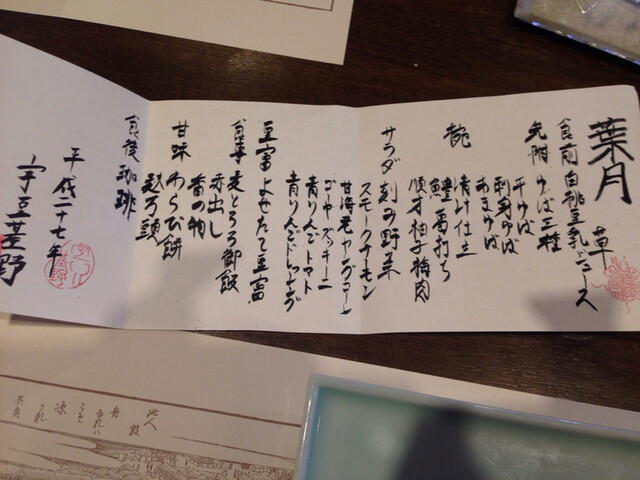 葉月
草
食前 白桃豆乳ジュース
先附 ゆば三種
干ゆば
刺身ゆば
あきゆば
椀
清汁仕立
鱧葛打ち
順才 柚子 梅肉
サラダ 刻み野菜
スモークサーモン
甘海老 ヤングコーン
ゴーヤ ズッキーニ
青りんご トマト
青りんごドレッシング
豆富 よせたて豆富
食事 麦とろろ御飯
赤出し
香の物
甘味 わらび餅
麩万頭
食後 珈琲
平成二十七年
宇豆基野
此人